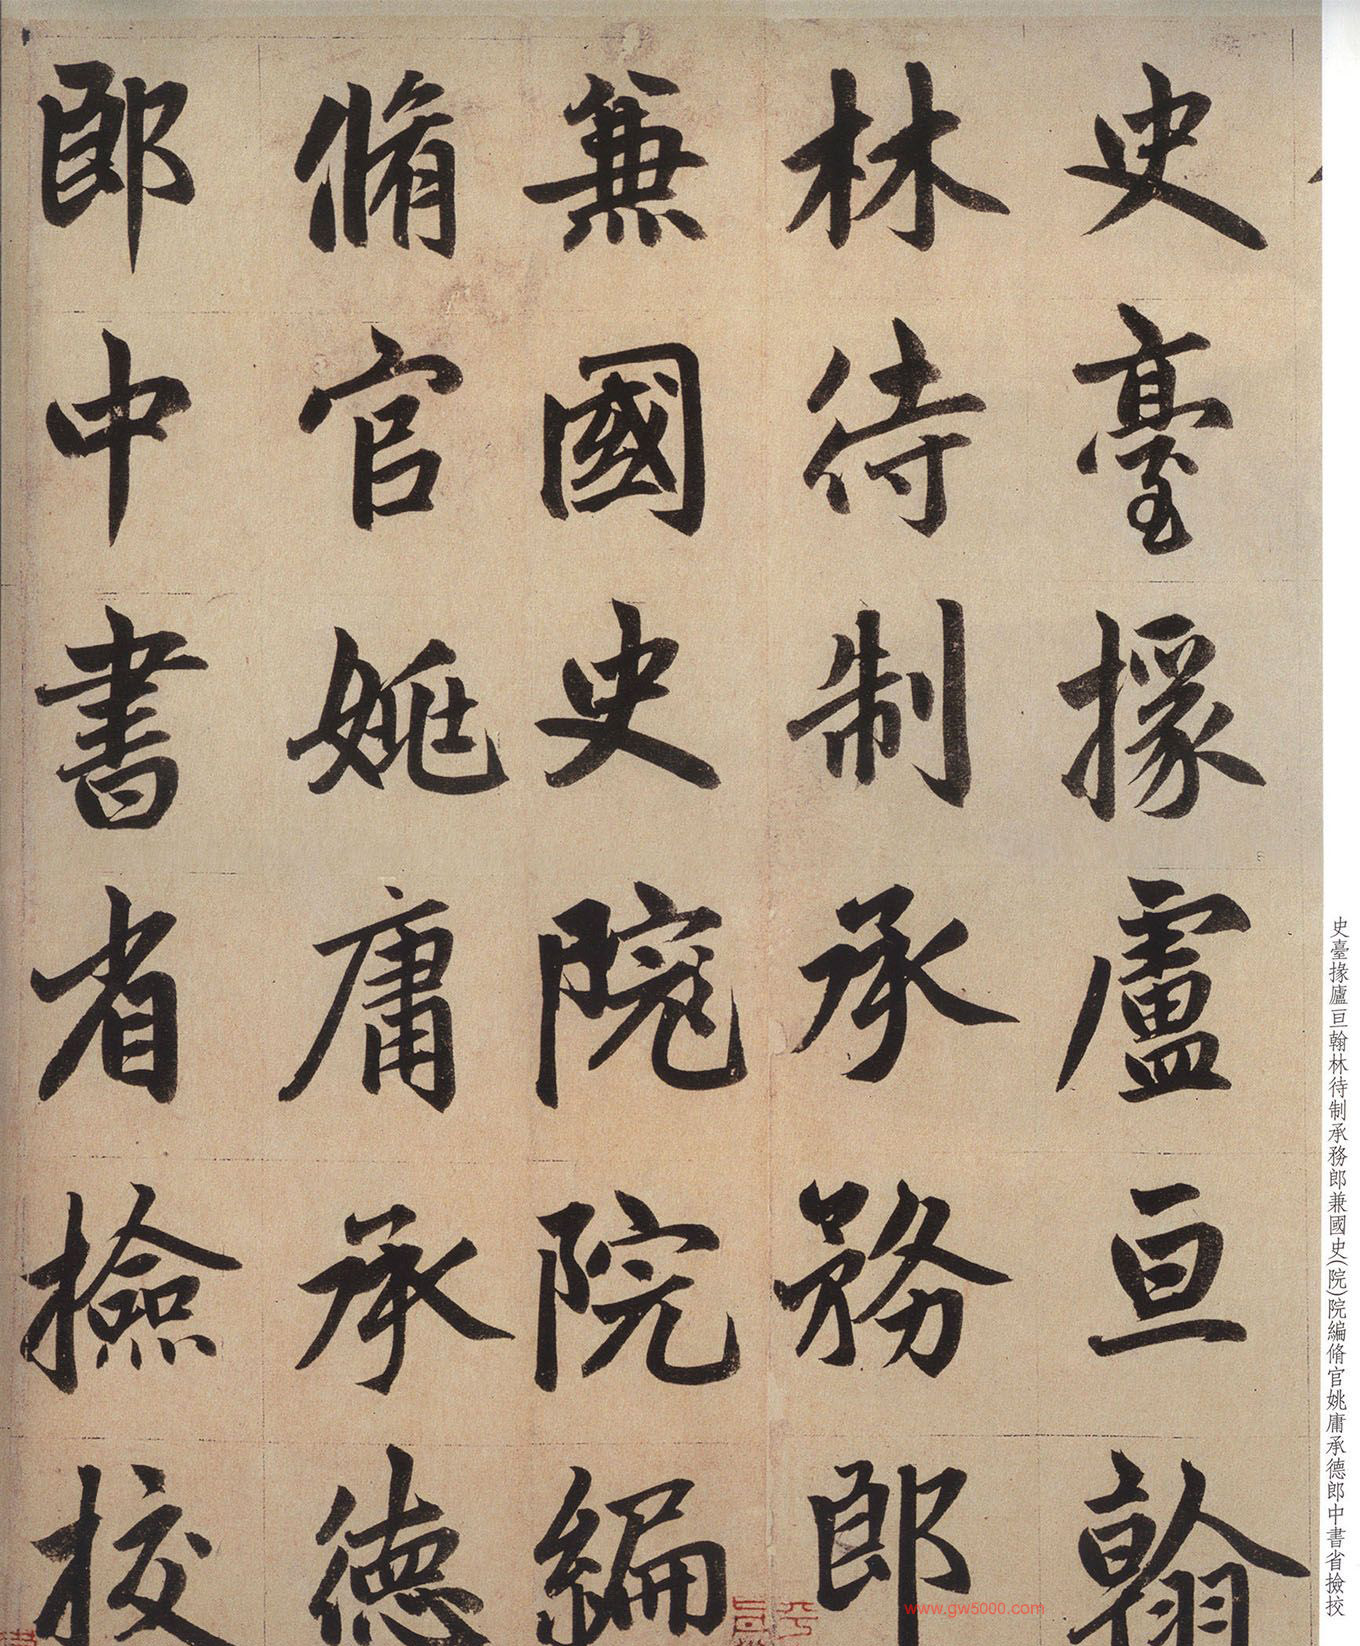 史臺掾盧亘翰
林待制承務郎
兼國史院院編
脩官姚庸承德
郎中書省撿挍
史臺掾廬亘翰林待制承務郎兼國史(院)院編脩官姚庸承德郎中書省撿挍
www.gw5000.com